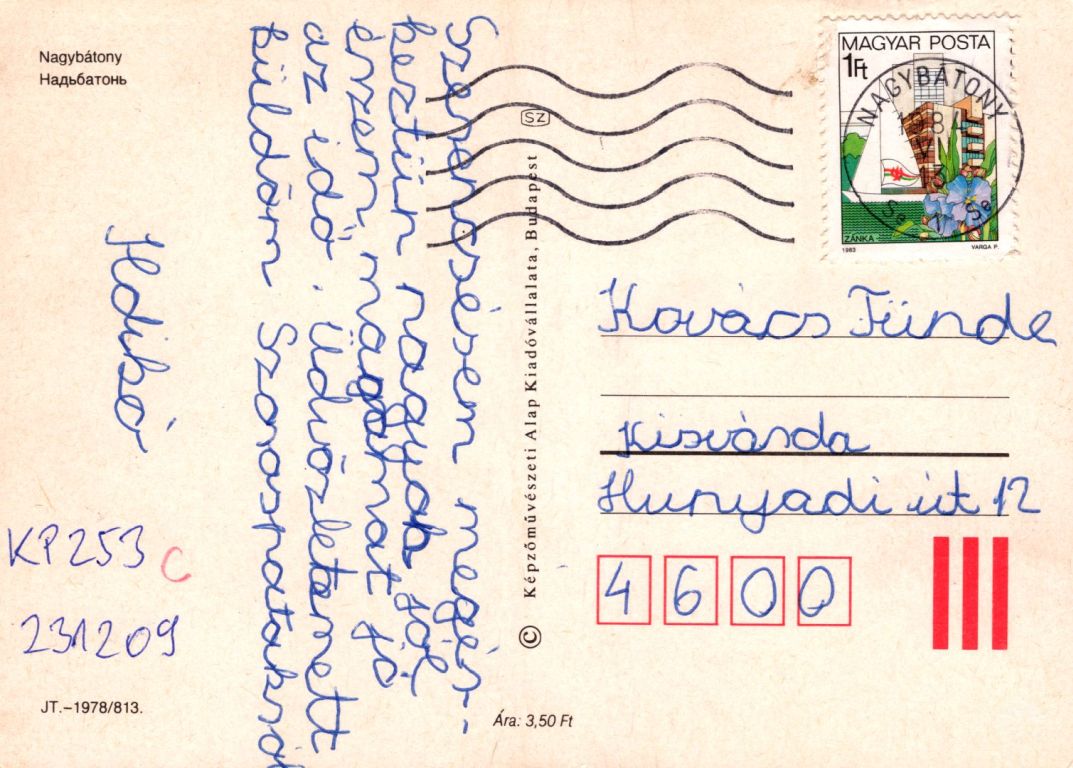 Nagybátony
Надьбатонь
Szerencsésen megér-
keztün nagyob jól
érzem magamat jó
az idő. üdvözletemett
küldöm Szorospatakról
Ildikó
KP253 C
231209
JT.–1978/813.
SZ
© Képzőművészeti Alap Kiadóvállalata, Budapest
Ára: 3,50 Ft
MAGYAR POSTA
1Ft
ZÁNKA
1983 VARGA P.
NAGYBÁTONY
Kovács Tünde
Kisvárda
Hunyadi út 12
4600